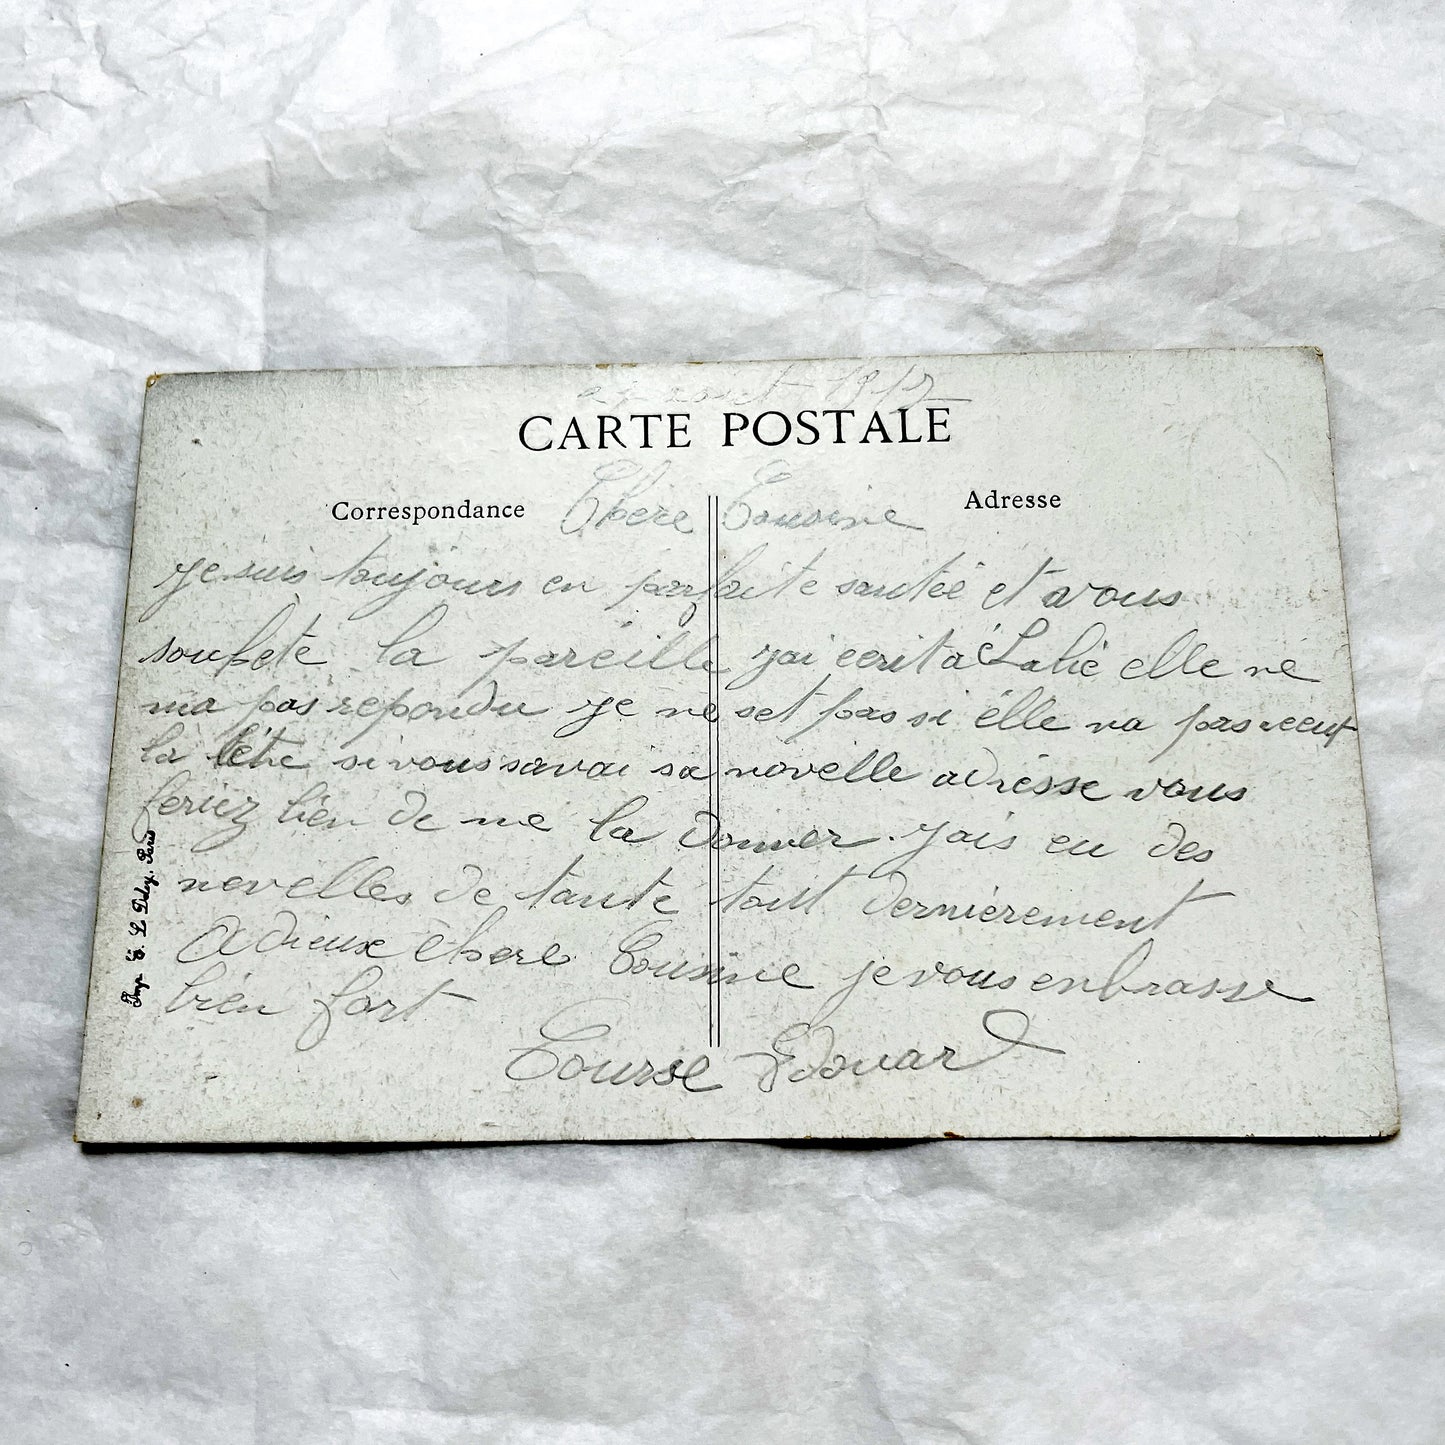 août 1917
CARTE POSTALE
Correspondance
Adresse
Chere Cousine
je suis toujours en parfaite santée et vous
souhete la pareille jai ecrit a Lalie elle ne
ma pas repondu je ne set pas si élle na pas recut
la létre si vous savai sa novelle adresse vous
feriez bien de me la donner. jais eu des
novelles de tante tout dernièrement
Adieux chere Cousine je vous enbrasse
bien fort
Course Edouard
Imp. E. L. Deley, Paris